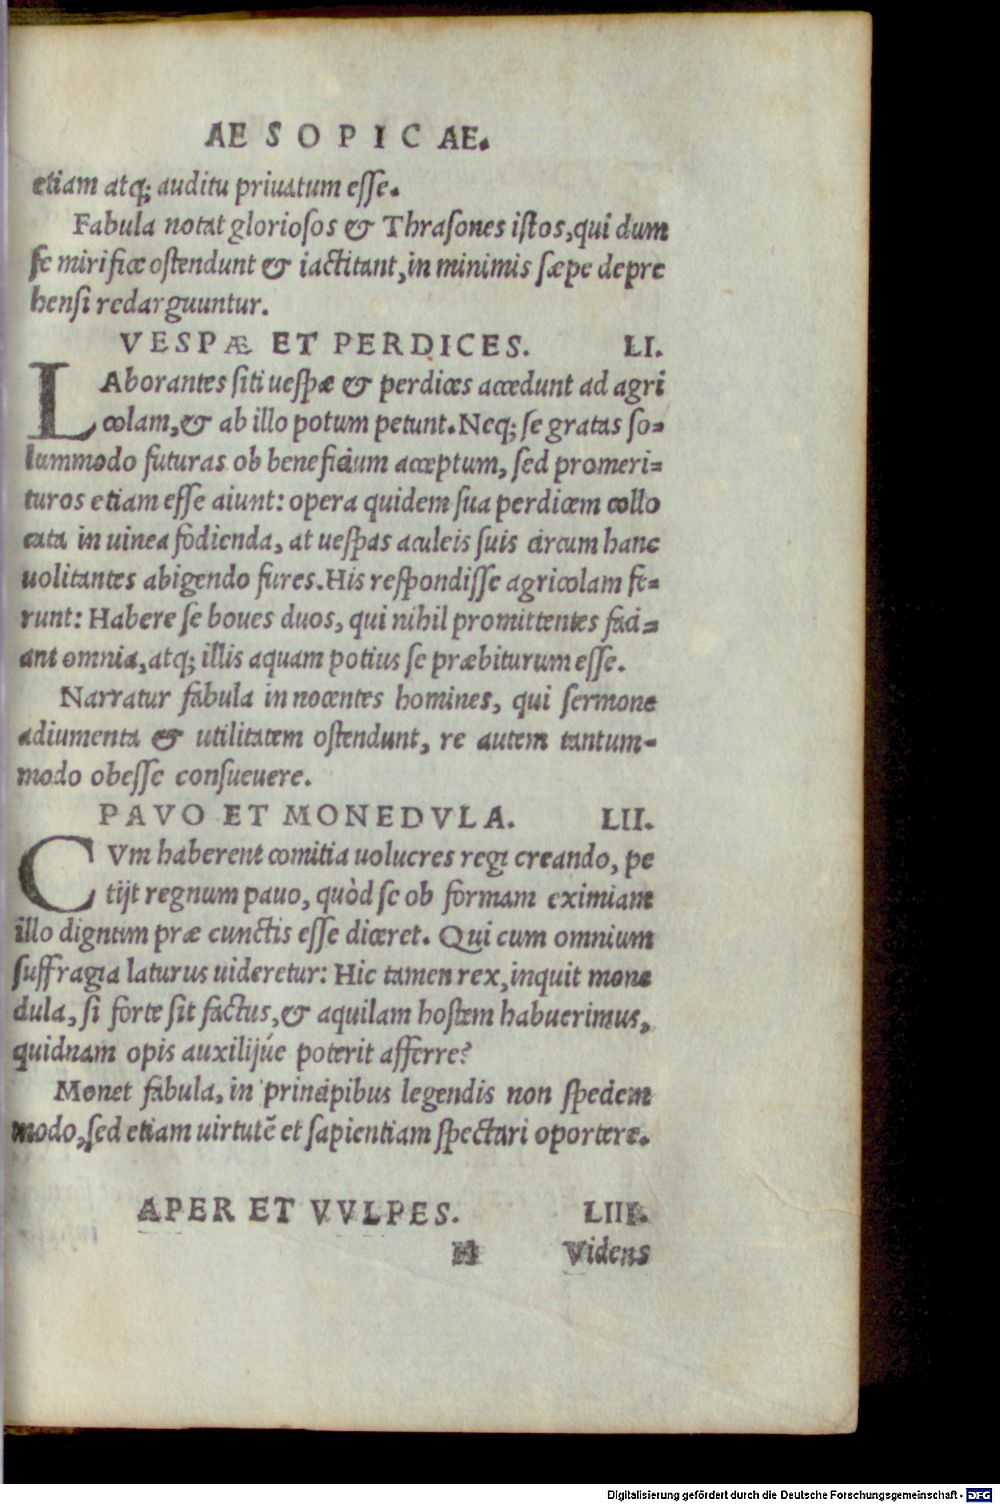 AESOPICAE.
etiam atq; auditu priuatum esse.
Fabula notat gloriosos & Thrasones istos, qui dum
se mirifice ostendunt & iactitant, in minimis sæpe depre
hensi redarguuntur.
VESPÆ ET PERDICES. LI.
LAborantes siti uespæ & perdices accedunt ad agri
colam, & ab illo potum petunt. Neq; se gratas so-
lummodo futuras ob beneficium acceptum, sed promeri-
turos etiam esse aiunt: opera quidem sua perdicem collo
cata in uinea fodienda, at uespas aculeis suis circum hanc
uolitantes abigendo fures. His respondisse agricolam fe-
runt: Habere se boues duos, qui nihil promittentes faci-
ant omnia, atq; illis aquam potius se præbiturum esse.
Narratur fabula in nocentes homines, qui sermone
adiumenta & utilitatem ostendunt, re autem tantum-
modo obesse consueuere.
PAVO ET MONEDVLA. LII.
CVm haberent comitia uolucres regi creando, pe
tijt regnum pauo, quòd se ob formam eximiam
illo dignum præ cunctis esse diceret. Qui cum omnium
suffragia laturus uideretur: Hic tamen rex, inquit mone
dula, si forte sit factus, & aquilam hostem habuerimus,
quidnam opis auxilijúe poterit afferre?
Monet fabula, in principibus legendis non speciem
modo, sed etiam uirtutē et sapientiam spectari oportere.
APER ET VVLPES. LIII.
H Videns
Digitalisierung gefördert durch die Deutsche Forschungsgemeinschaft - DFG